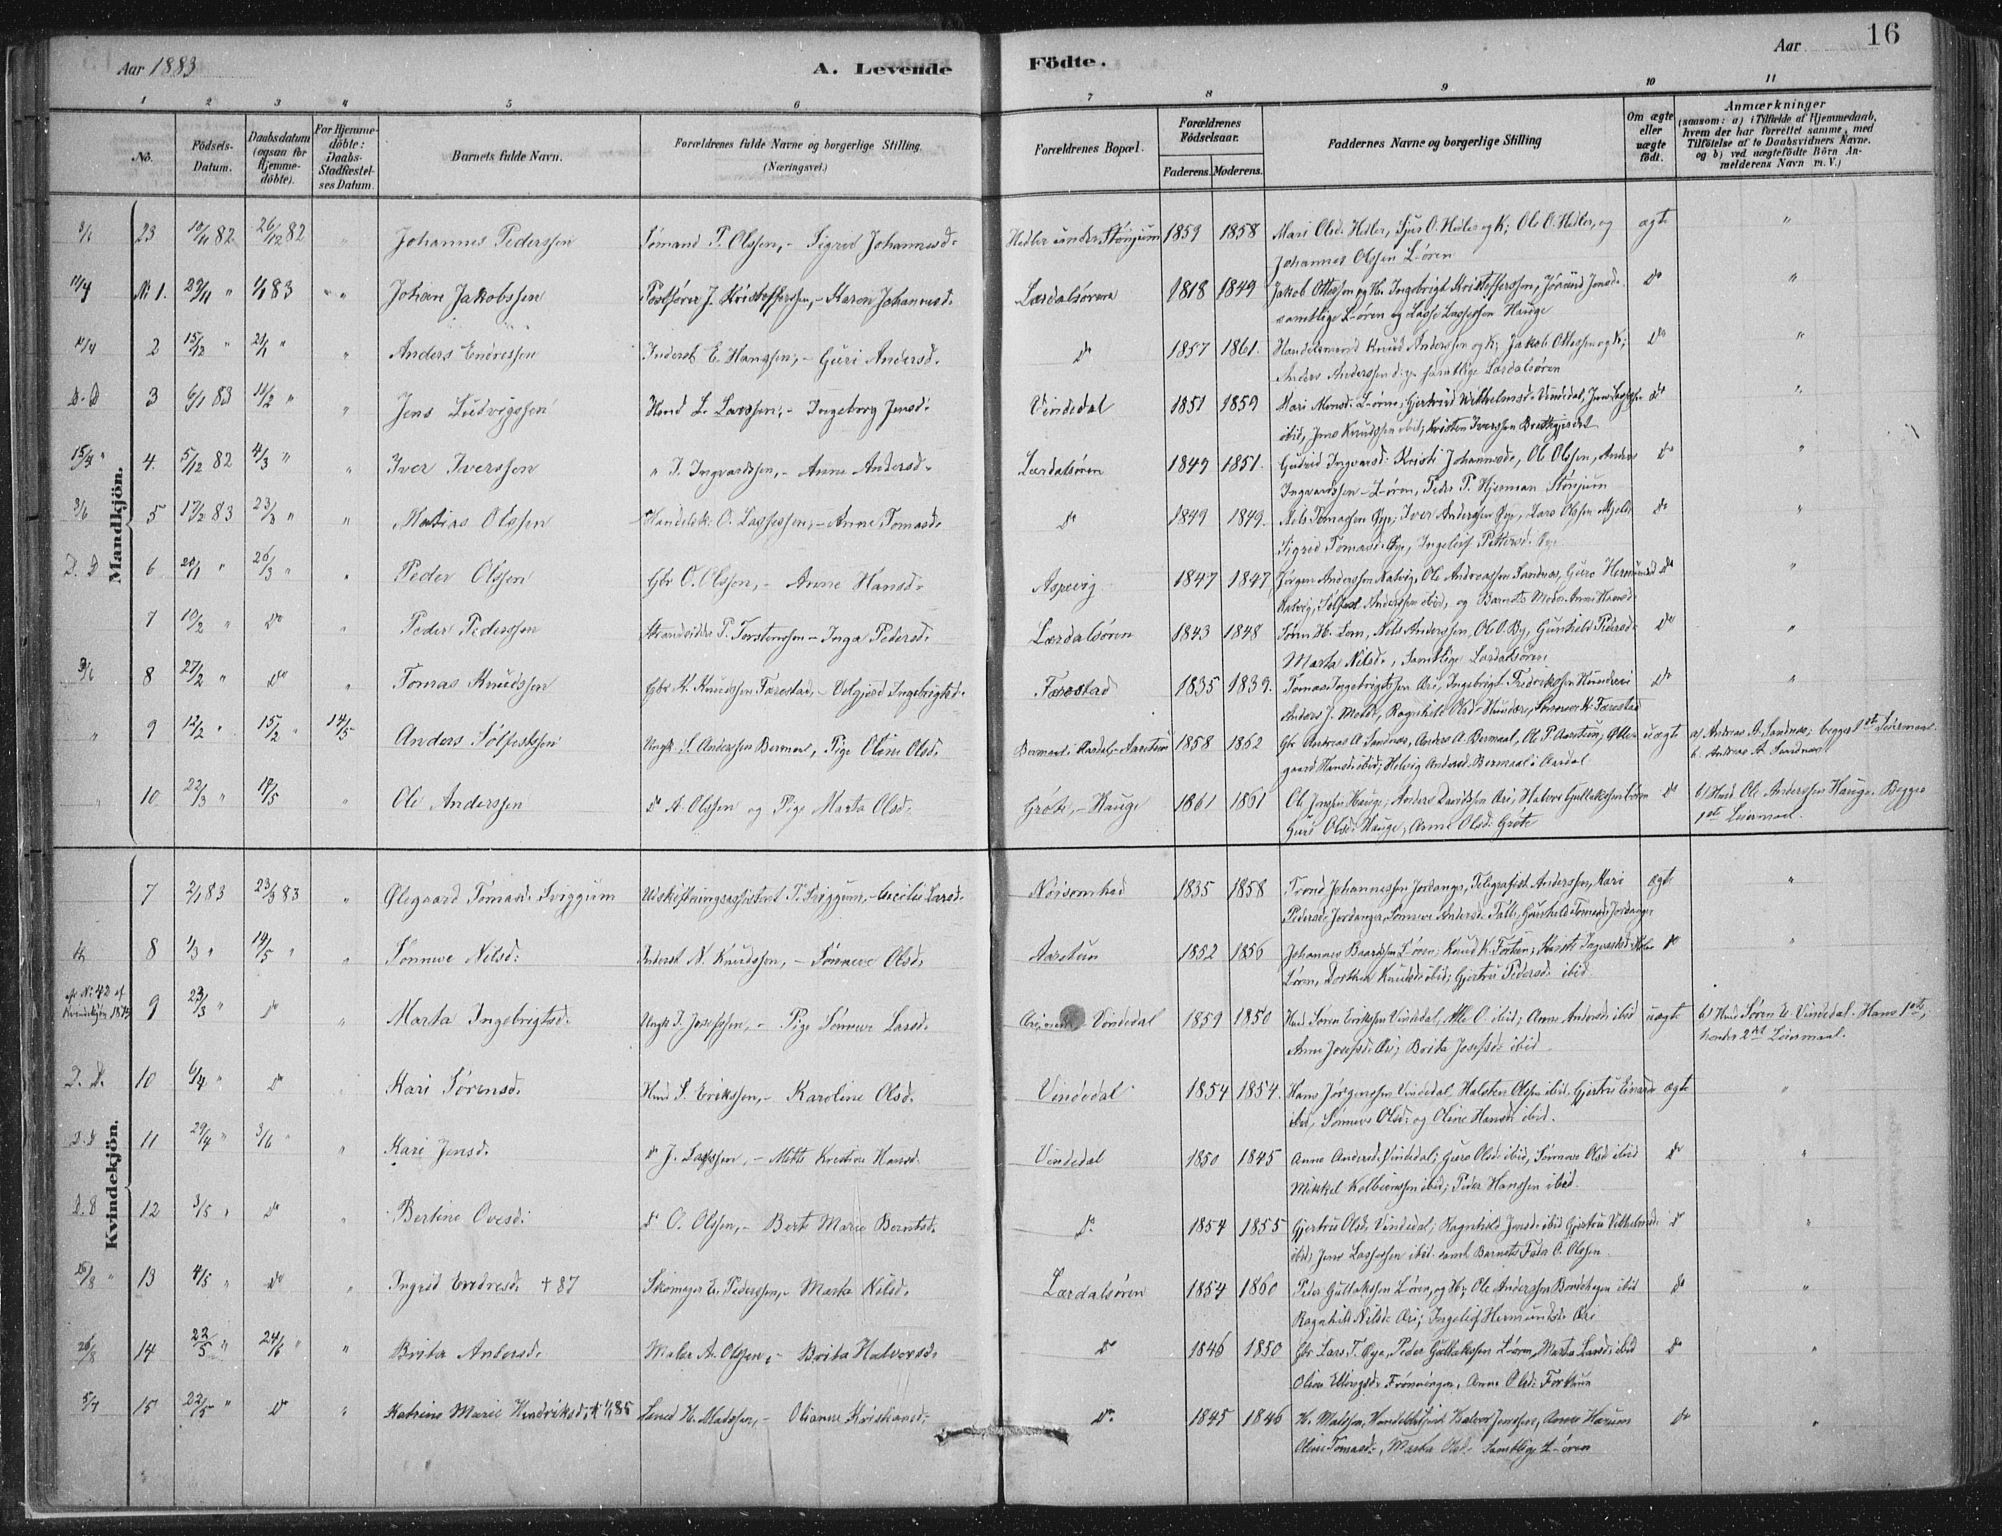 Aar 1883
A. Levende
Födte.
Aar
16
1 2 3 4 5 6 7 8 9 10 11
No.
Födsels-Datum.
Daabsdatum (ogsaa for Hjemme-döbte).
For Hjemme-döbte: Daabs-Stadfæstel-ses Datum.
Barnets fulde Navn.
Forældrenes fulde Navne og borgerlige Stilling. (Næringsvei.)
Forældrenes Bopæl.
Forældrenes Födselsaar.
Faderens. Moderens.
Faddernes Navne og borgerlige Stilling
Om ægte eller uægte födt.
Anmærkninger
(saasom: a) i Tilfælde af Hjemmedaab, hvem der har forrettet samme, med Tilföielse af to Daabsvidners Navne. og b) ved uægtefödte Börn An-melderens Navn m. V.)
Mandkjön.
23 10/11 82 26/12 82 " Johannes Pederssen Sømand P. Olssen, - Sigrid Johannesd. Hedler under Stönjum 1859 1858 Mari Olsd. Hedler, Sjur O. Hedler og K; Ole O. Hedler, og ægte "
Johannes Olssen L-øren
11/4 No 1. 23/11 " 1/1 83 " Johan Jakobssen Postfører J. Kristofferssen, - Karen Johannesd. Lærdalsøren 1818 1849 Jakob Ottessen og H. Ingebrigt Kristofferssen, Jörund Jensd. Do "
samtlige L-øren og Lasse Lassessen Hauge
2 15/12 " 21/1 " " Anders Endressen Inderst E. Hanssen, - Guri Andersd. Do 1857 1861. Handelsmand Knud Anderssen og K; Jakob Ottessen og K; Do "
Anders Anderssen samtlige Lærdalsøren
D. D 3 6/1 83 11/2 " " Jens Ludvigssen Hmd L. Larssen, - Ingeborg Jensd. Vindedal 1851 1859 Mari Monsd. L-øren; Gjertrud Vilhelmsd. Vindedal, Jens Lassessen Do "
ibid, Jens Knudssen ibid; Kristen Iverssen
15/4 " 4. 5/12 82 4/3 " " Iver Iverssen " I. Ingvardssen, - Anne Andersd. Lærdalsøren 1849 1851. Gudrid Ingvarsd. Kristi Johannesd., Ole Olssen, Anders Do "
Ingvardssen L-øren, Peder P. Hjerman Stönjum
3/6 5 17/2 83 23/3 " " Matias Olssen Handelsk. O. Lassessen, - Anne Tomasd. Do 1849 1849. Nels Tomassen Øye, Iver Anderssen Øye, Lars Olssen Do "
Sigrid Tomasd. Øye, Ingeleif Pettersd. Øye
D. D 6 20/1 " 26/3 " " Peder Olssen Gbr O. Olssen, - Anne Hansd. Aspevig 1847 1847 Jörgen Anderssen Natvig, Ole Andreassen Sandnæs, Guro Do "
Natvig, Sølfest Anderssen ibid, og Barnets Moder Anne Hansd.
7 10/2 " Do " Peder Pederssen Strandsidder P. Torstenssen - Inga Pedersd. Lærdalsören 1843 1848 Sören H. Lem, Nels Anderssen, Ole O. By, Gunhild Pedersd. Do "
Marta Nilsd., Samtlige Lærdalsören
3/6 8 27/2 " Do " Tomas Knudssen Gbr K. Knudssen Færestad, - Velgjerd Ingebrigtsd. Færestad 1835 1839. Tomas Ingebrigtssen Øri, Ingebrigt Fredrikssen Hunderi Do "
Anders J. Molde, Ragnhild Olsd. Hundere, Synneve K. Færestad
" 9 12/2 " 15/2 " 14/5 Anders Sölfestssen Ungk S. Anderssen Bermaal, Pige Oline Olsd. Bermaal i Aardal - Aaretun 1858 1862 Gbr Andreas A. Sandnæs, Anders A. Bermaal, Ole P. Aaretun, uægte a) Andreas A. Sandnæs; begges 1ste Leiermaal.
b. Andreas A. Sandnæs
gaard Hansd. ibid; Helvig Andersd. Bermaal i Aardal
" 10 22/3 " 14/5 " Ole Anderssen Do A. Olssen og Pige Marta Olsd. Gröte, - Hauge 1861 1861 Ole Jensen Hauge; Anders Davidssen Øri, Halvor Gullakssen L-øren Do b) Hmd Ole Anderssen Hauge. Begges
1ste Leiermaal.
Guri Olsd. Hauge, Anne Olsd. Gröte
Kvindekjön.
7 2/1 83 23/3 83 " Ølegaard Tomasd. Sviggum Udskiftningsassistent T. Sviggum, - Cecilie Larsd. Nösomhed 1835 1858 Trond Johannessen Jordanger, Telegrafist Anderssen, Kari ægte "
Pedersd. Jordanger, Sönneve Andersd. Tolle, Gunhild Tomasd. Jordanger
8 1/3 " 14/5 " " Sönneve Nilsd. Inderst N. Knudssen, - Sönneve Olsd. Aaretun 1852 1856 Johannes Baardssen L-øren; Knud K. Fortun; Kristi Ingvarsd. Do "
L-øren, Dorthea Knudsd. ibid; Gjertru Pedersd. ibid
af No 42 af Kvindekjön 1875 9 23/3 " Do " Marta Ingebrigtsd. Ungk I. Josefssen, - Pige Sönneve Larsd. Øri, Vindedal 1859 1850 Hmd Sören Erikssen Vindedal, Atle O. ibid; Anne Andersd. ibid uægte b) Hmd Sören E. Vindedal. Hans 1ste,
hendes 2det Leiermaal.
Anne Josefsd. Øri; Brita Josefsd. ibid
D. D. 10 6/4 " Do " Kari Sörensd. Hmd S. Erikssen, - Karoline Olsd. Vindedal 1854 1854. Hans Jörgenssen Vindedal, Halsten Olssen ibid. Gjertru Einarsd. ægte "
ibid, Sönneve Olsd. og Oline Hansd. ibid.
D. D 11 29/4 " 3/6 " " Kari Jensd. Do J. Lassessen, - Mette Kristine Hansd. Vindedal 1850 1845 Anne Andersd. Vindedal; Guro Olsd. ibid, Sönneve Olsd. ibid Do "
Mikkel Kolbeinssen ibid; Peder Hanssen ibid.
D. D 12 3/5 " Do " Bertine Ovesd. Do O. Olssen, - Berte Marie Berntsd. Do 1854 1855 Gjertru Olsd. Vindedal; Ragnhild Jensd. ibid Gjertru Vilhelmsd. Do "
ibid; Jens Lassessen ibid. samt Barnets Fader O. Olssen.
26/8 " 13 4/5 " Do " Ingrid Endresd. + 87 Skomager E. Pederssen, - Marta Nilsd. Lærdalsören 1854 1860 Peder Gullakssen L-øren, og H; Ole Anderssen ibid Do "
Ragnhild Nilsd. Øri; Ingeleif Hermundsd. Øri
26/8 14 22/5 " 24/6 " " Brita Andersd. Maler A. Olssen, - Brita Halvorsd. Do 1846 1850 Gbr Lars T. Øye, Peder Gullakssen L-øren, Marta Larsd. ibid Do "
Oline Ellingsd. Frönningen, Anne Olsd. Fortun
5/7 15 22/5 " Do " Katrine Marie Hendriksd. + 85 H. Madssen, - Olianne Kristiansd. Do. 1845 1846 H. Madssen, Halvor Jenssen, Anne Do "
Oline Tomasd., Marta Olsd. Samtlige L-øren